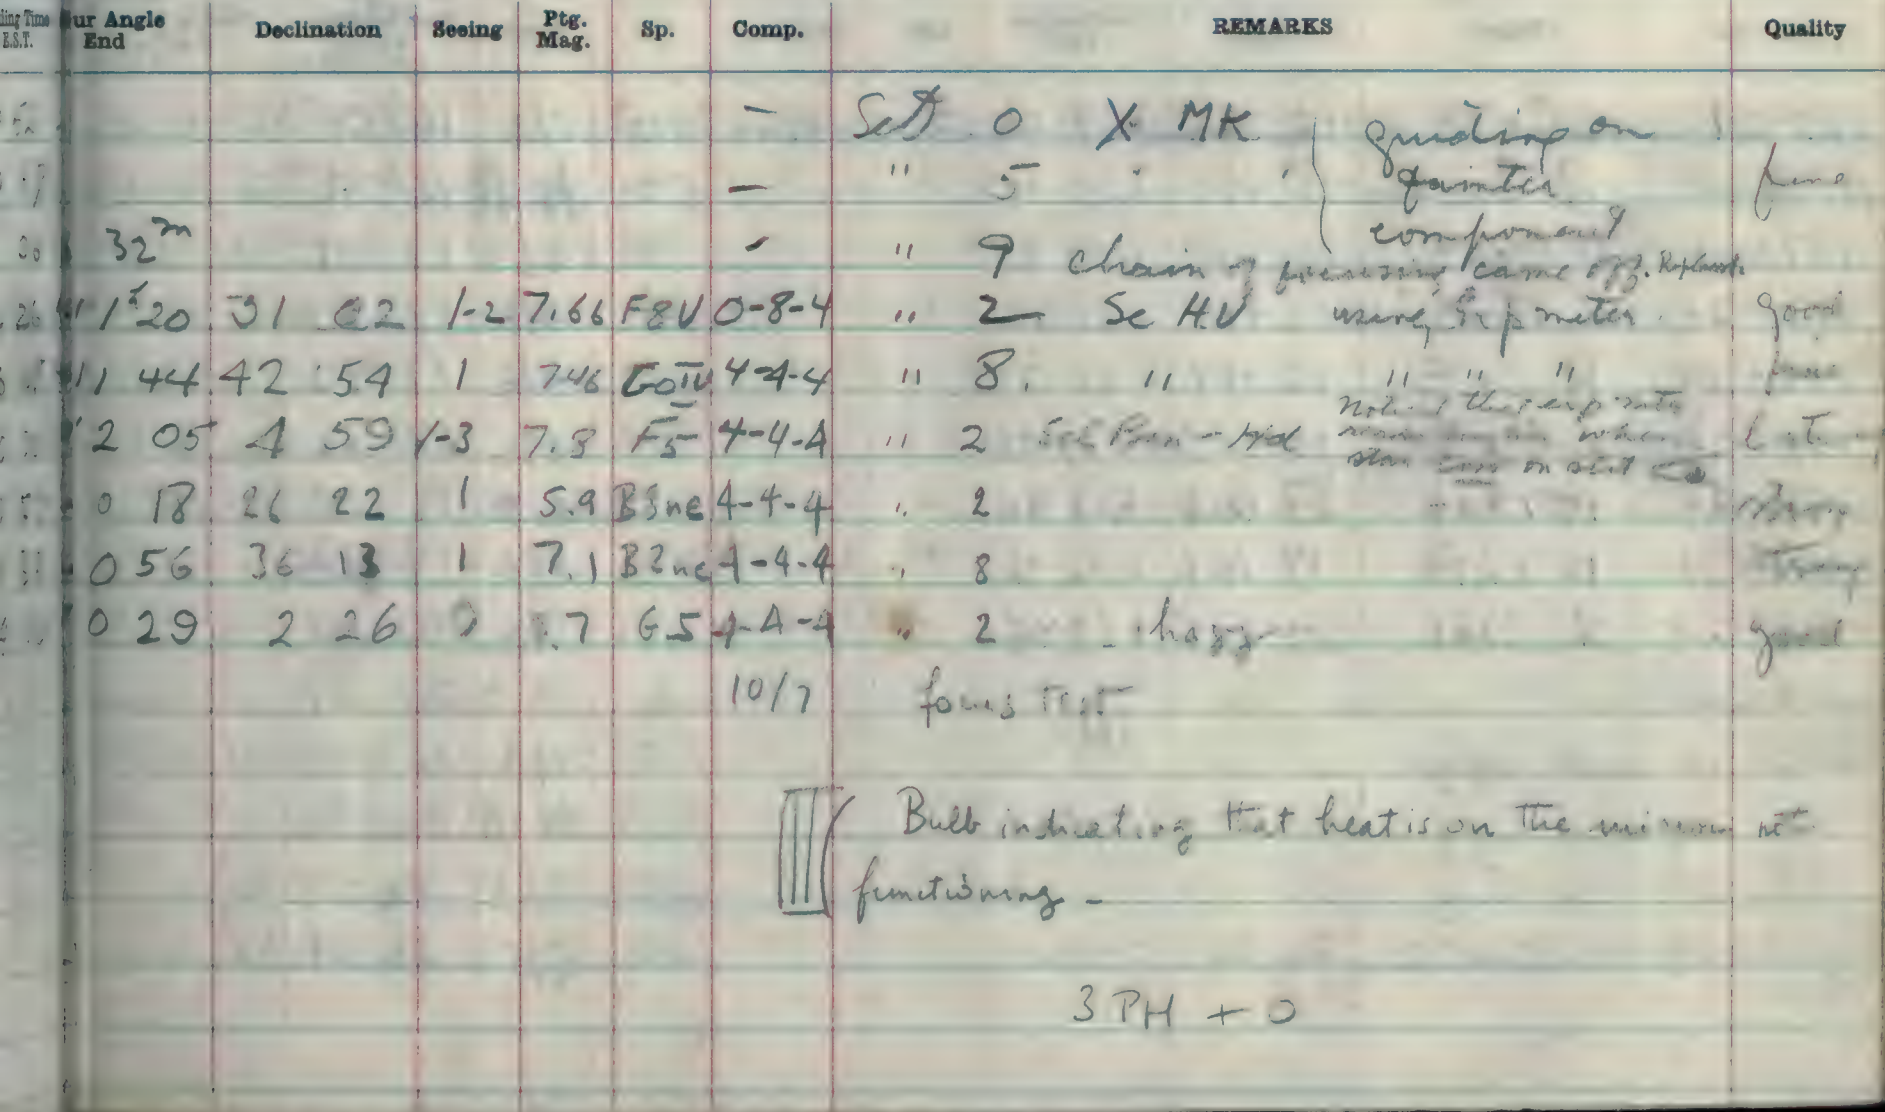 ur Angle End Declination Seeing Ptg. Mag. Sp. Comp. REMARKS Quality
E.S.T.
— Sett 0 X MK guiding on
— " 5 " " fainter fine
32m - " 9 component
chain focusing came off. Replaced.
26 1h 20 31 02 1-2 7.66 F8V 0-8-4 " 2 Sc HV using exp meter. good
1 44 42 54 1 7.46 G0IV 4-4-4 " 8. " " " "
2 05 4 59 1-3 7.8 F5 4-4-4 " 2
when
star on slit
0 18 26 22 1 5.9 B3ne 4-4-4 " 2
0 56 36 13 1 7.1 B2ne 4-4-4 " 8 strong
0 29 2 26 .7 G5 4-4-4 " 2 hazy good
10/7 focus test
Bulb indicating that heat is on the mirror not
functioning -
3 PH + O